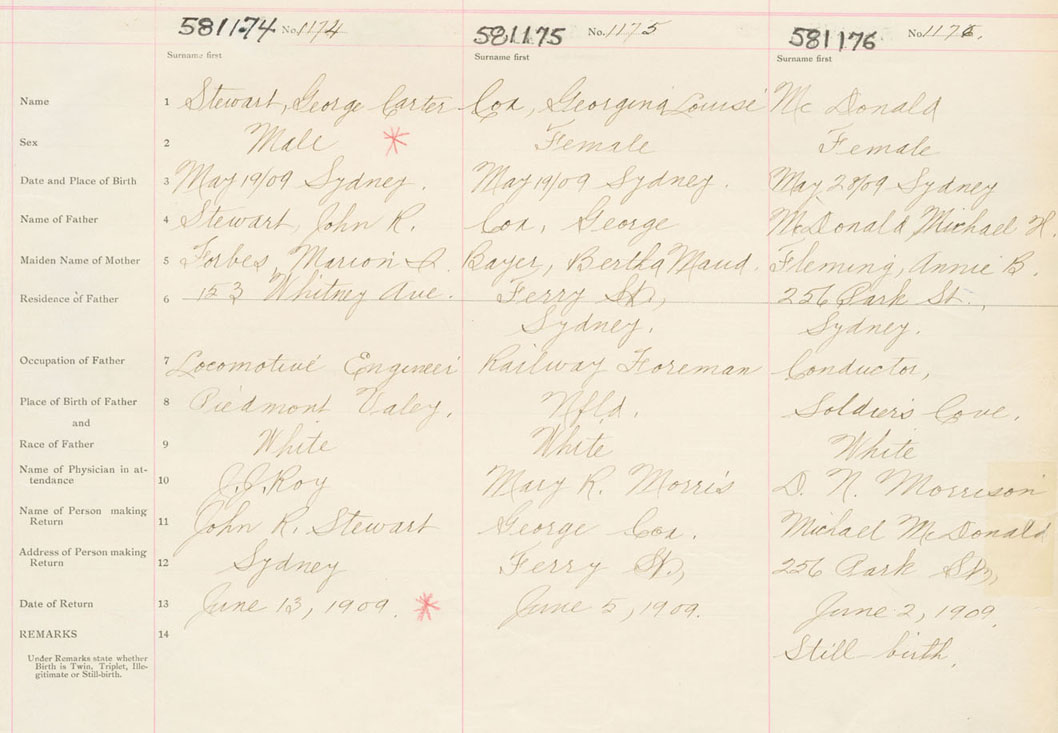 581174 No. 1174 581175 No. 1175 581176 No. 1176.
Surname first Surname first Surname first
Name 1 Stewart, George Carter Cox, Georgina Louise Mc Donald
Sex 2 Male Female Female
Date and Place of Birth 3 May 19/09 Sydney. May 19/09 Sydney. May 28/09 Sydney
Name of Father 4 Stewart, John R. Cox, George McDonald Michael H.
Maiden Name of Mother 5 Forbes, Marion Bayer, Bertha Maud. Fleming, Annie B.
Residence of Father 6 153 Whitney Ave. Ferry St., 256 Park St.,
Sydney. Sydney.
Occupation of Father 7 Locomotive Engineer Railway Foreman Conductor,
Place of Birth of Father 8 Piedmont Valey. Nfld. Soldier's Cove.
and
Race of Father 9 White White White
Name of Physician in at-
tendance 10 J.J. Roy Mary R. Morris D. N. Morrison
Name of Person making
Return 11 John R. Stewart George Cox. Michael McDonald
Address of Person making
Return 12 Sydney Ferry St., 256 Park St.,
Date of Return 13 June 13, 1909. June 5, 1909. June 2, 1909.
REMARKS 14
Still birth.
Under Remarks state whether
Birth is Twin, Triplet, Ille-
gitimate or Still-birth.